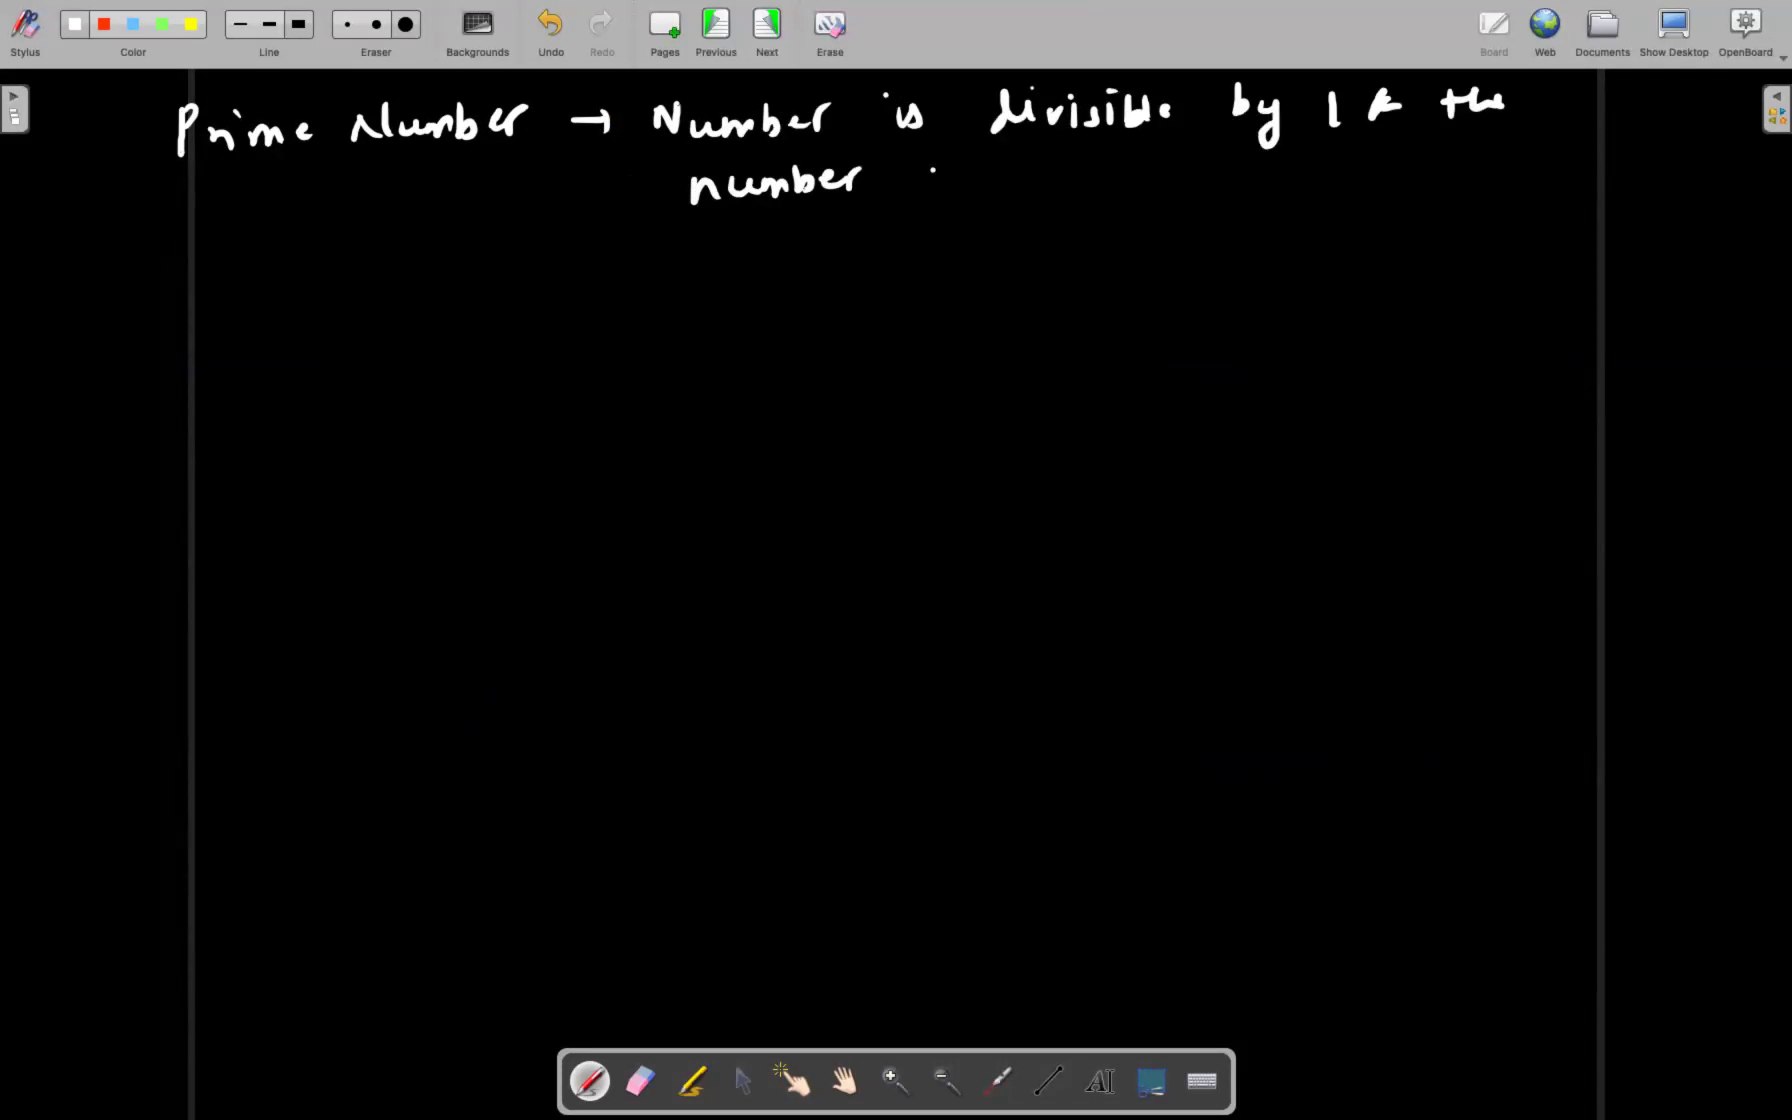 Stylus Color Line Eraser Backgrounds Undo Redo Pages Previous Next Erase Board Web Documents Show Desktop OpenBoard
Prime Number → Number is divisible by 1 & the
number
AI